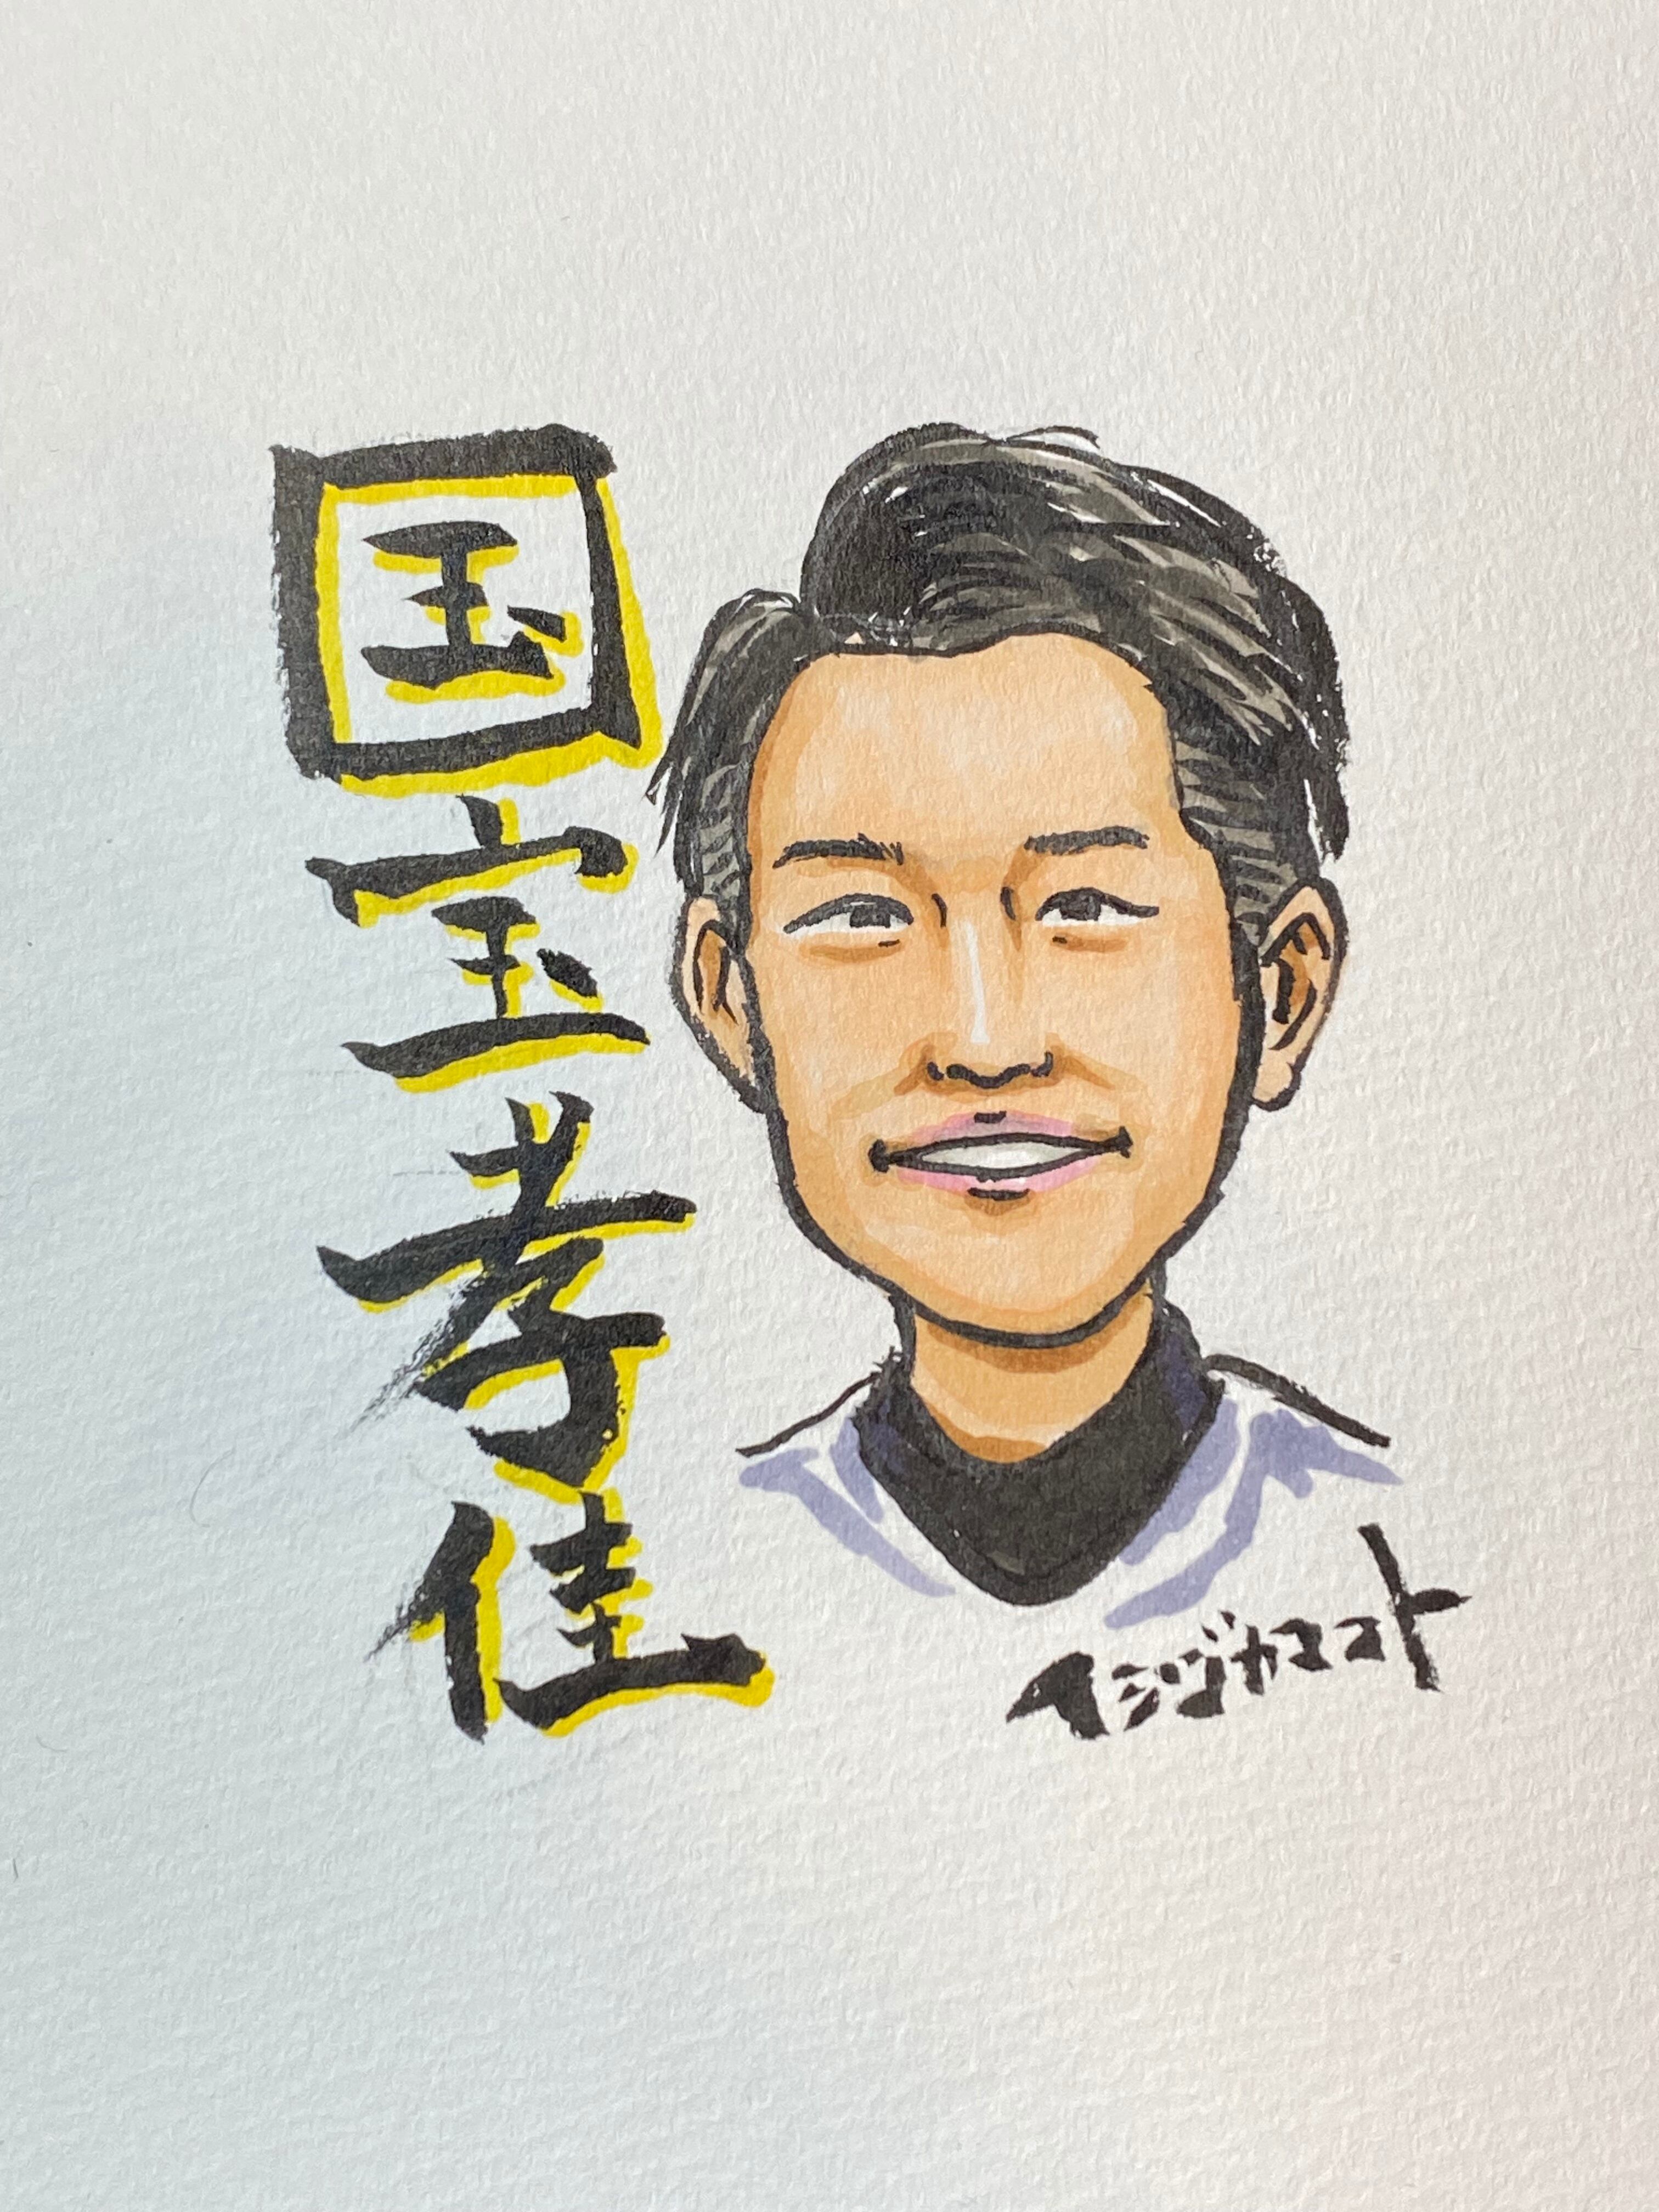 国宝孝佳
イシヅカマコト